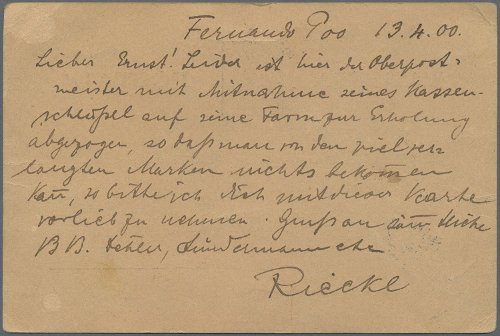 Fernando Poo 13.4.00.
Lieber Ernst! Leider ist hier der Oberpost-
meister mit Mitnahme seines Kassen-
schlüßel auf seine Farm zur Erholung
abgezogen, so daß man von den viel ver-
langten Marken nichts bekommen
kann, so bitte ich Dich mit dieser Karte
vorlieb zu nehmen. Gruß an
B B.
Rieckl